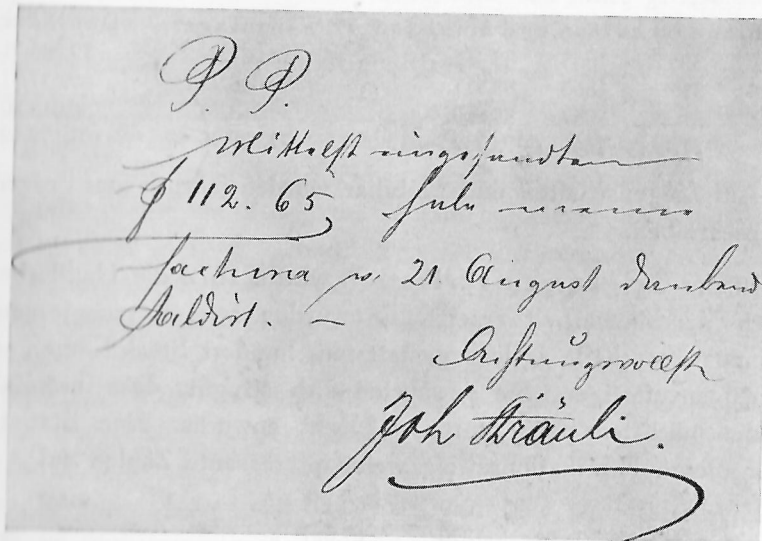 P. P.
Mittelst eingesandten
f 112. 65 habe meine
Factura v. 21 August dankend
saldirt. –
Achtungsvollst
Joh Sträuli.